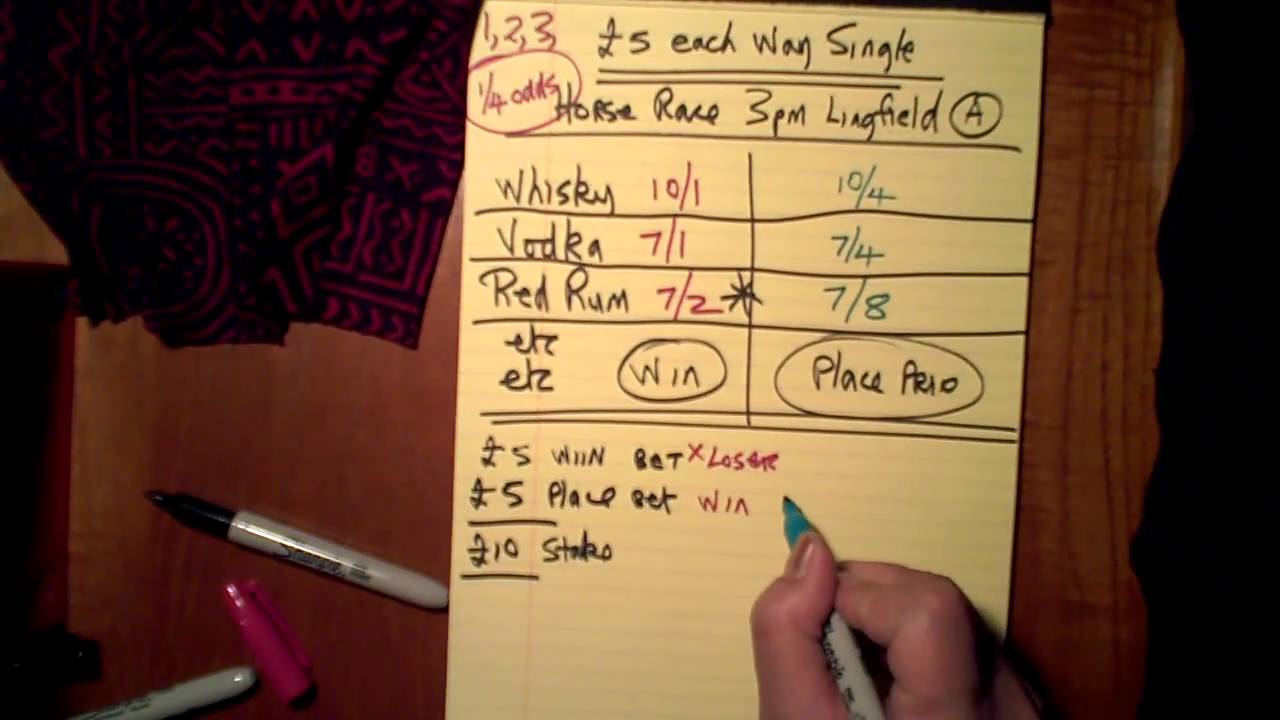 1,2,3,
£5 each Way Single
1/4 odds
Horse Race 3pm Lingfield A
Whisky 10/1 10/4
Vodka 7/1 7/4
Red Rum 7/2 * 7/8
etc
etc Win Place
£5 WIIN BET X LOSER
£5 Place Bet WIN
£10 Stake
Sharpie